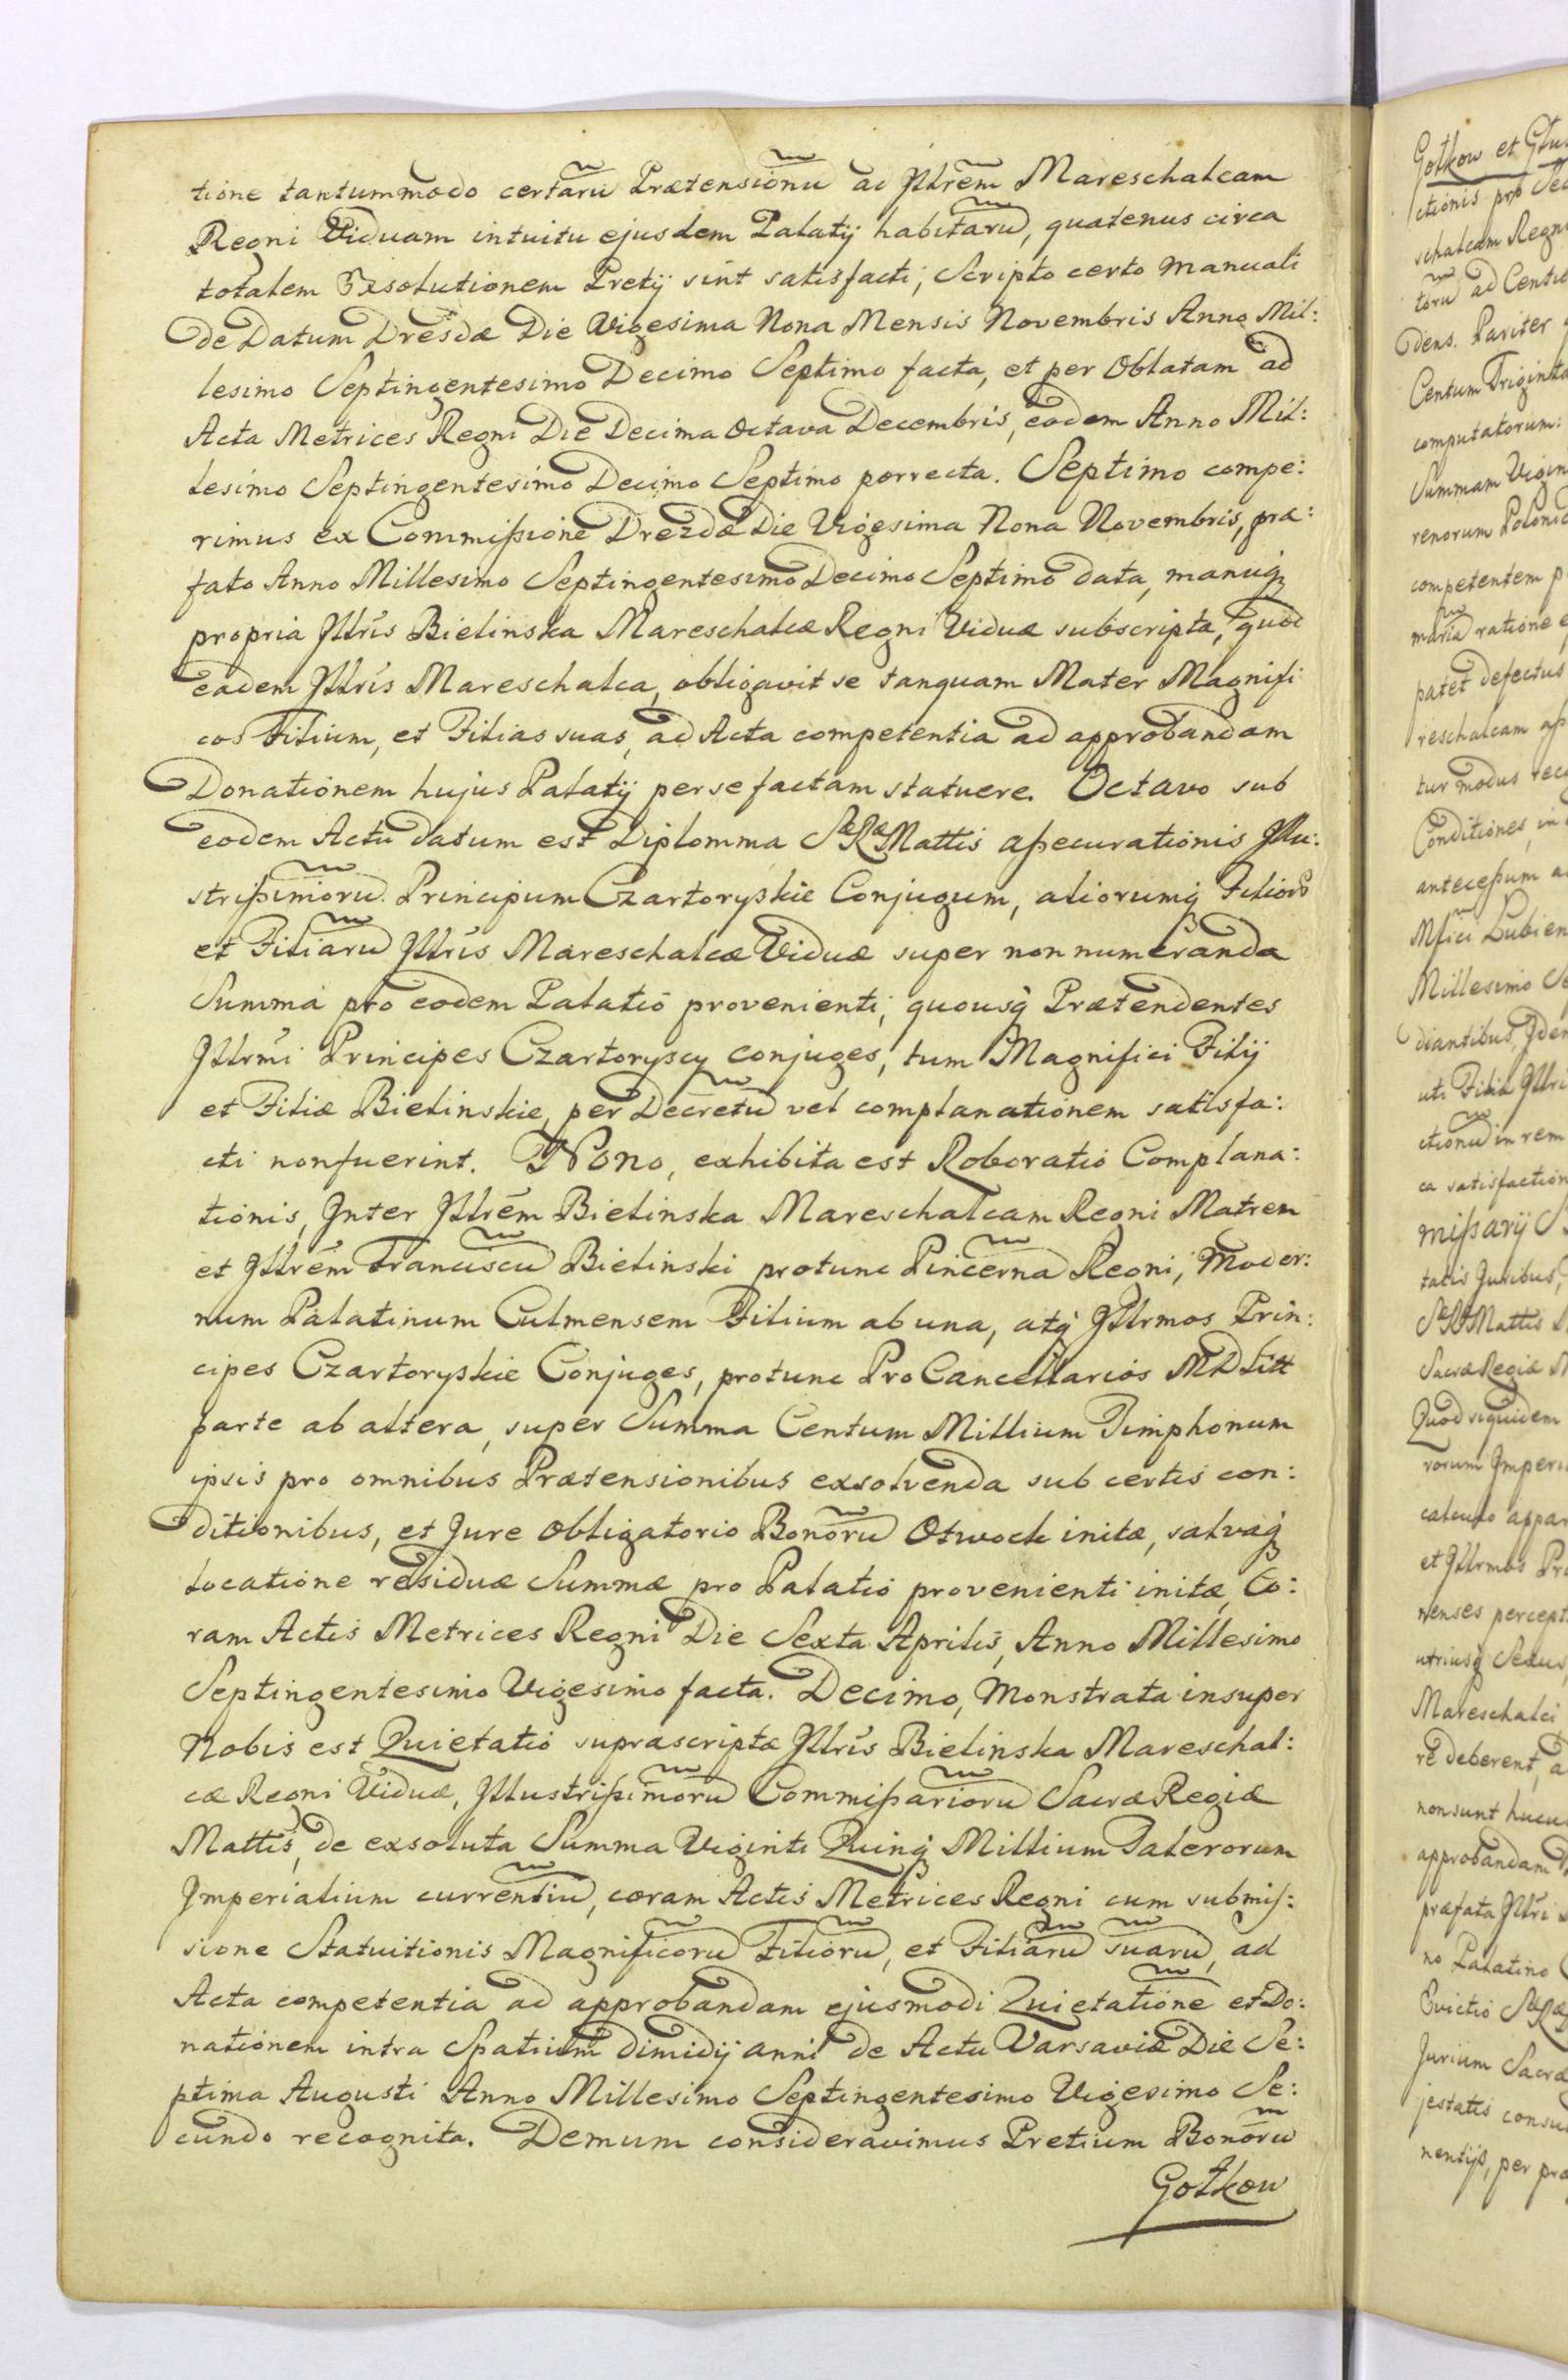 tione tantummodo certarũ Prætensionũ ad Jllrẽm Mareschalcam
Regni Viduam intuitu ejusdem Palatij habitarũ, quatenus circa
totalem Exsolutionem Pretij sint satisfacti; Scripto certo manuali
de Datum Dresdæ Die Vigesima Nona Mensis Novembris Anno Mil:
lesimo Septingentesimo Decimo Septimo facta, et per Oblatam ad
Acta Metrices Regni Die Decima Octava Decembris, eodem Anno Mil:
lesimo Septingentesimo Decimo Septimo porrecta. Septimo compe:
rimus ex Commißione Drezdæ Die Vigesima Nona Novembris, præ:
fato Anno Millesimo Septingentesimo Decimo Septimo data, manuq̃
propria Jllris Bielinska Mareschalcæ Regni Viduæ subscripta, quod
eadem Jllris Mareschalca, obligavit se tanquam Mater Magnifi
cos Filium, et Filias suas, ad Acta competentia ad approbandam
Donationem hujus Palatij per se factam statuere. Octavo sub
eodem Actu datum est Diplomma SæRæMattis aßecurationis Jllu:
strißimorũ Principum Czartoryskie Conjugum, aliorumq̃ Filiorũ
et Filiarũ Jllris Mareschalcæ Viduæ super non numeranda
Summa pro eodem Palatio provenienti, quousq̃ Prætendentes
Jllrmi Principes Czartoryscy conjuges, tum Magnifici Filij
et Filiæ Bielinskie, per Decretũ vel complanationem satisfa:
cti nonfuerint. Nono, exhibita est Roboratio Complana:
tionis, Jnter Jllrẽm Bielinska Mareschalcam Regni Matrem
et Jllrẽm Franciscũ Bielinski protunc Pincernã Regni, Moder:
num Palatinum Culmensem Filium ab una, atq̃ Jllrmos Prin:
cipes Czartoryskie Conjuges, protunc ProCancellarios MDLitt
parte ab altera, super Summa Centum Millium Timphonum
ipsis pro omnibus Prætensionibus exsolvenda sub certis con:
ditionibus, et Jure obligatorio Bonorũ Otwock initæ, salvaq̃
locatione residuæ Summæ pro Palatio provenienti initæ, Co:
ram Actis Metrices Regni Die Sexta Aprilis, Anno Millesimo
Septingentesimo Vigesimo facta. Decimo, Monstrata insuper
Nobis est Quietatio suprascriptæ Jllris Bielinska Mareschal:
cæ Regni Viduæ, Jllustrißimorũ Commißariorũ Sacræ Regiæ
Mattis, de exsoluta Summa Viginti Quinq̃ Millium Talerorum
Jmperialium currentiũ, coram Actis Metrices Regni cum submiß:
sione Statuitionis Magnificorũ Filiorũ, et Filiarũ suarũ, ad
Acta competentia ad approbandam ejusmodi Quietationẽ et Do:
nationem intra Spatium dimidij anni de Actu Varsaviæ Die Se:
ptima Augusti Anno Millesimo Septingentesimo Vigesimo Se:
cundo recognita. Demum consideravimus Pretium Bonorũ
Gotkow
Gotkow et
ctionis pro
schalcam Regni
torũ ad
dens. Pariter
Centum Triginta
computatorum:
Summam
renorum
competentem
ratione
patet defectus
reschalcam
tur modus
Conditiones, in
anteceßum
Mfici
Millesimo
diantibus,
uti Filia
ctionũ in rem
ca
mißarij
tatis Juribus,
SæRæMattis
Sacræ Regiæ
Quod siquidem
rorum
calculo
et Jllrmos
nenses
utriusq̃ Sexus
Mareschalci
re deberent,
non sunt
approbandam
præfata
no Palatino
Evictio
Jurium Sacræ
jestatis
nentijs, per